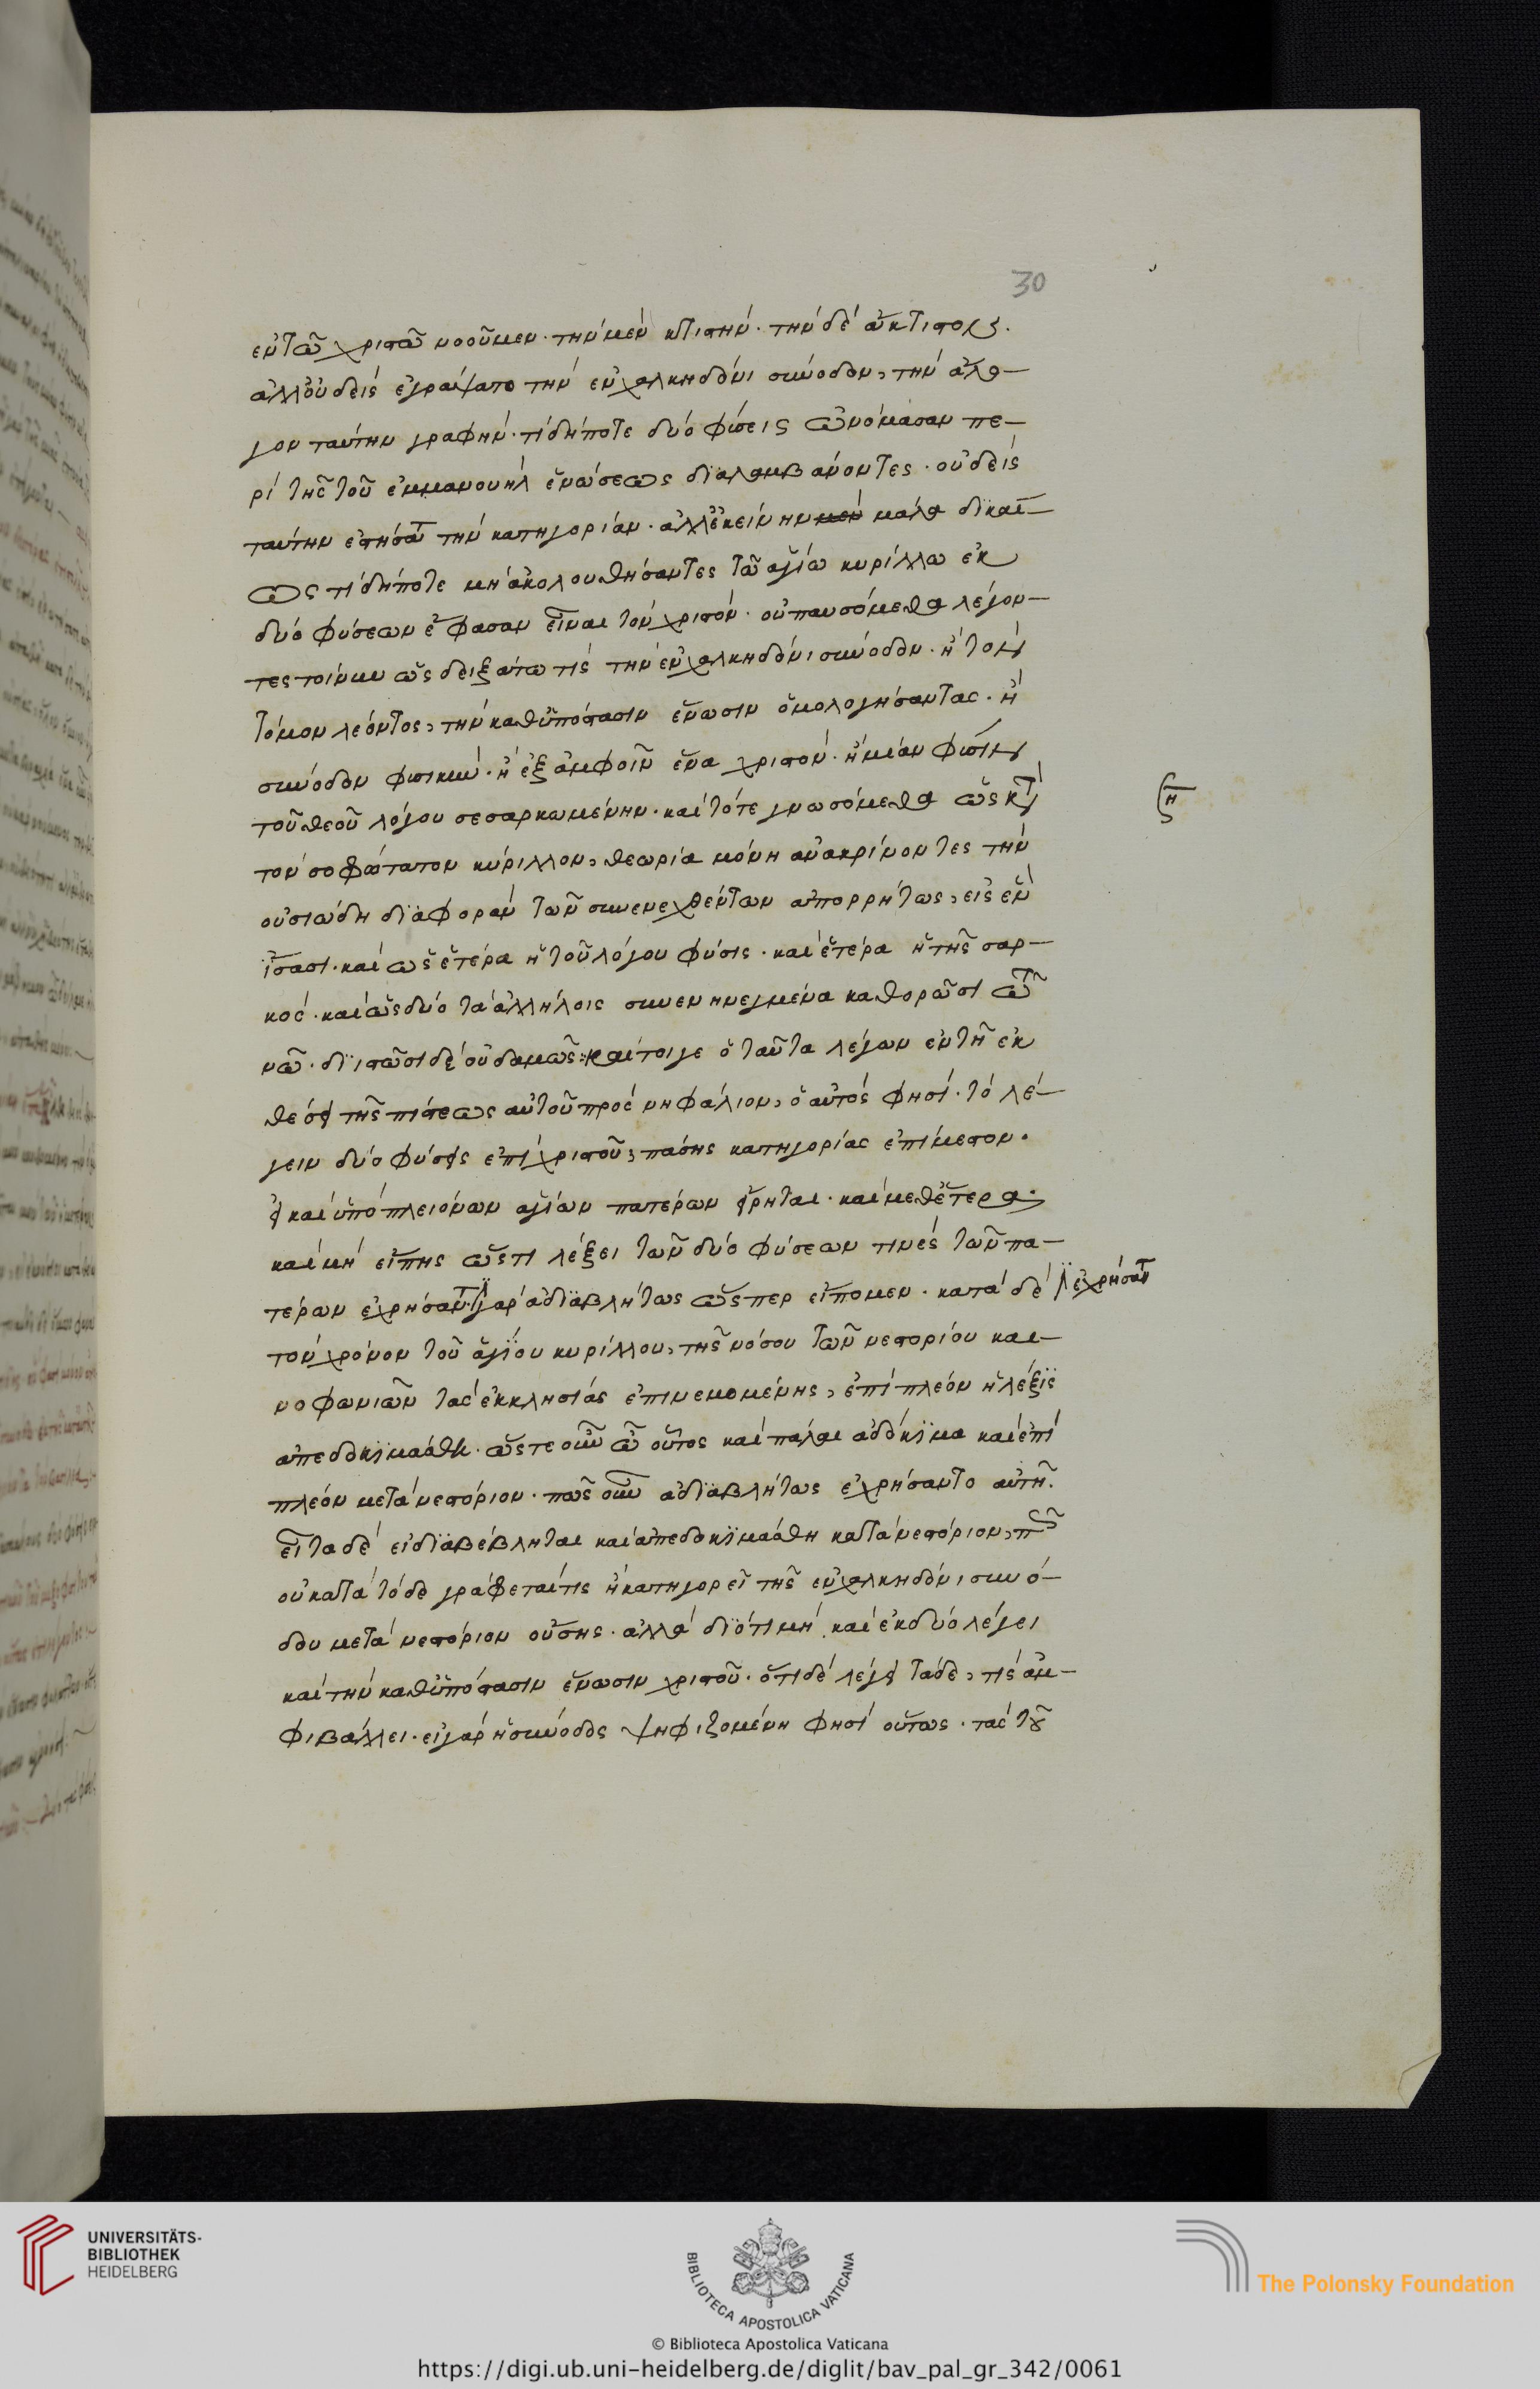 30
ἐν τῶ χριστῶ νοοῦμεν· τὴν μὲν κτιστὴν· τὴν δὲ ἄκτιστον.
ἀλλ' οὐδεὶς ἐγράψατο τὴν ἐν χαλκηδόνι σύνοδον, τὴν ἄλο-
γον ταύτην γραφήν· τί δήποτε δύο φύσεις ὠνόμασαν πε-
ρὶ τῆς τοῦ ἐμμανουὴλ ἑνώσεως διαλαμβάνοντες· οὐδεὶς
ταύτην ἐστήσατ την κατηγορίαν· ἀλλ' ἐκείνην μὲν μάλα δικαί-
ως τί δήποτε μὴ ἀκολουθήσαντες τῶ ἁγίω κυρίλλω ἐκ
δύο φύσεων ἔφασαν εἶναι τὸν χριστόν· οὐ παυσόμεθα λέγον-
τες τοίνυν ὡς δειξάτω τίς τὴν ἐν χαλκηδόνι σύνοδον· ἢ τὸν
τόμον λέοντος, τὴν καθ' ὑπόστασιν ἕνωσιν ὁμολογήσαντας· ἢ
σύνοδον φυσικὴν· ἢ ἐξ ἀμφοῖν ἕνα χριστόν· ἢ μίαν φύσιν
τοῦ θεοῦ λόγου σεσαρκωμένην· καὶ τότε γνωσόμεθα ὡς κατὰ
τὸν σοφώτατον κύριλλον, θεωρία μόνη ἀνακρίνοντες τὴν
οὐσιώδη διαφορὰν τῶν συνενεχθέντων ἀπορρήτως, εἰς ἓν
ἴσασι· καὶ ὡς ἑτέρα ἡ τοῦ λόγου φύσις· καὶ ἑτέρα ἡ τῆς σαρ-
κός· καὶ ὡς δύο τὰ ἀλλήλοις συνενηνεγμένα καθορῶσι τῶ
νῶ· διιστῶσι δὲ οὐδαμῶς: καίτοιγε ὁ ταῦτα λέγων ἐν τῆ ἐκ
θέσει τῆς πίστεως αὐτοῦ πρὸς νηφάλιον, ὁ αὐτός φησι· τὸ λέ-
γειν δύο φύσεις ἐπὶ χριστοῦ, πάσης κατηγορίας ἐπίμεστον·
εἰ καὶ ὑπὸ πλειόνων ἁγίων πατέρων εἴρηται· καὶ μεθ' ἕτερα·
καὶ μὴ εἴπης ὡς τῆ λέξει τῶν δύο φύσεων τινὲς τῶν πα-
τέρων ἐχρήσαντο γὰρ ἀδιαβλήτως ὥσπερ εἴπομεν· κατὰ δὲ ἐχρήσαντ
τὸν χρόνον τοῦ ἁγίου κυρίλλου, τῆς νόσου τῶν νεστορίου και-
νοφωνιῶν τὰς ἐκκλησίας ἐπινεμομένης, ἐπὶ πλέον ἡ λέξις
ἀπεδοκιμάσθη· ὥστε οὖν ὦ οὗτος καὶ πάλαι ἀδόκιμα καὶ ἐπὶ
πλέον μετὰ νεστόριον· πῶς οὖν ἀδιαβλήτως ἐχρήσαντο αὐτῆ.
εἶτα δὲ εἰ διαβέβληται καὶ ἀπεδοκιμάσθη κατὰ νεστόριον, πῶς
οὐ κατὰ τόδε γράφεταί τις ἢ κατηγορεῖ τῆς ἐν χαλκηδόνι συνό-
δου μετὰ νεστόριον οὔσης· ἀλλὰ διότι μὴ καὶ ἐκ δύο λέγει
καὶ τὴν καθ' ὑπόστασιν ἕνωσιν χριστοῦ· ὅτι δὲ λέγει τάδε, τίς ἀμ-
φιβάλλει· εἰ γὰρ ἡ σύνοδος ψηφιζομένη φησὶ οὕτως· τὰς τοῦ
UNIVERSITÄTS-
BIBLIOTHEK
HEIDELBERG
BIBLIOTECA APOSTOLICA VATICANA
The Polonsky Foundation
© Biblioteca Apostolica Vaticana
https://digi.ub.uni-heidelberg.de/diglit/bav_pal_gr_342/0061